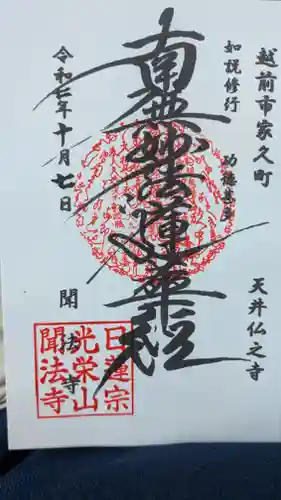 越前市家久町
天井仏之寺
如説修行
功徳甚多
南無妙法蓮華経
令和七年十月七日
聞法寺
日蓮宗
光栄山
聞法寺